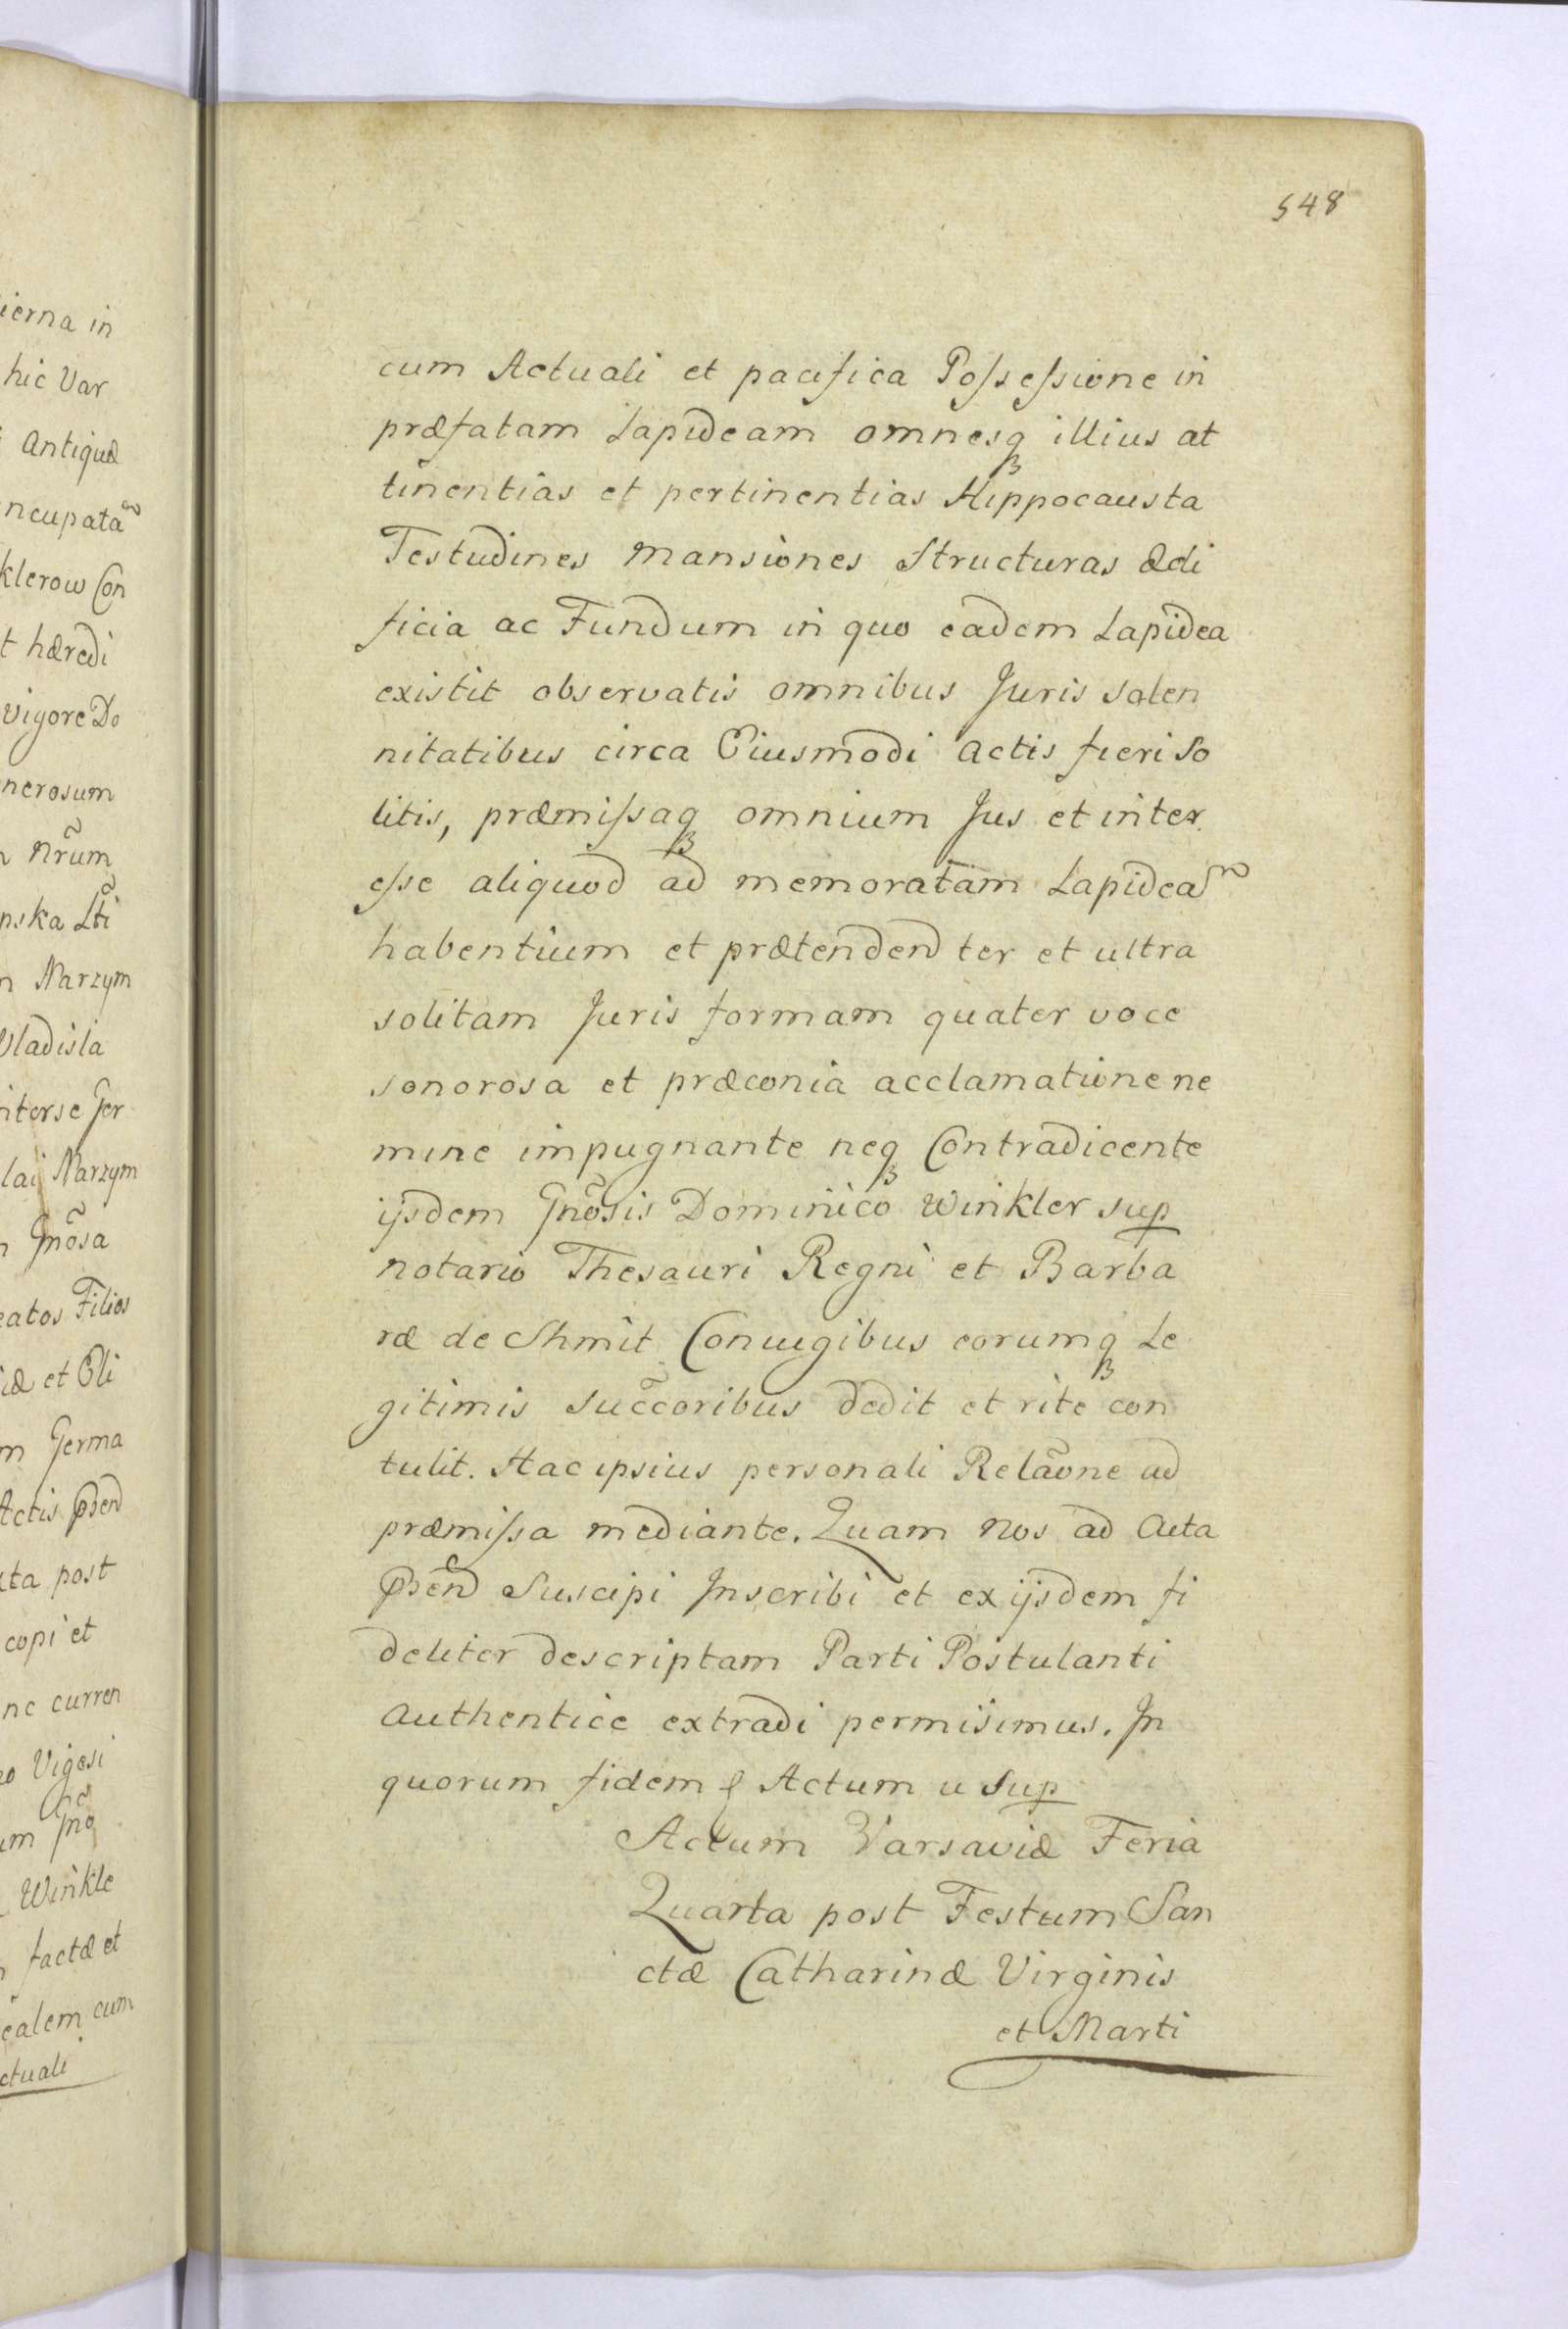 ierna in
hic Var
Antiquæ
ncupatã
klerow Con
t hæredi
vigore Do
nerosum
Nrũm
nska Lti
n Narzym
Vladisla
nterse Ger
lai Narzym
Gnõsa
eatos Filios
iæ et Eli
m Germa
Actis pñd
cta post
copi et
nc curren
Vigesi
um Gnõ
Winkle
factæ et
ealem cum
ctuali
548
cum Actuali et pacifica Possessione in
præfatam Lapideam omnesq₃ illius at
tinentias et pertinentias Hippocausta
Testudines mansiones Structuras ædi
ficia ac Fundum in quo eadem Lapidea
existit observatis omnibus Juris solen
nitatibus circa Eiusmodi actis fieri so
litis, præmissaq₃ omnium Jus et inter
esse aliquod ad memoratam Lapideã
habentium et prætendend ter et ultra
solitam Juris formam quater voce
sonorosa et præconia acclamatione ne
mine impugnante neq₃ Contradicente
ijsdem Gnõsis Dominico Winkler sup
notario Thesauri Regni et Barba
ræ de Shmit Coniugibus eorumq₃ Le
gitimis succ̃oribus dedit et rite con
tulit. Hac ipsius personali Relãone ad
præmissa mediante. Quam nos ad Acta
pñd Suscipi Inscribi et ex ijsdem fi
deliter descriptam Parti Postulanti
Authentice extradi permisimus. In
quorum fidem Actum u sup
Actum Varsaviæ Feria
Quarta post Festum San
ctæ Catharinæ Virginis
et Marti